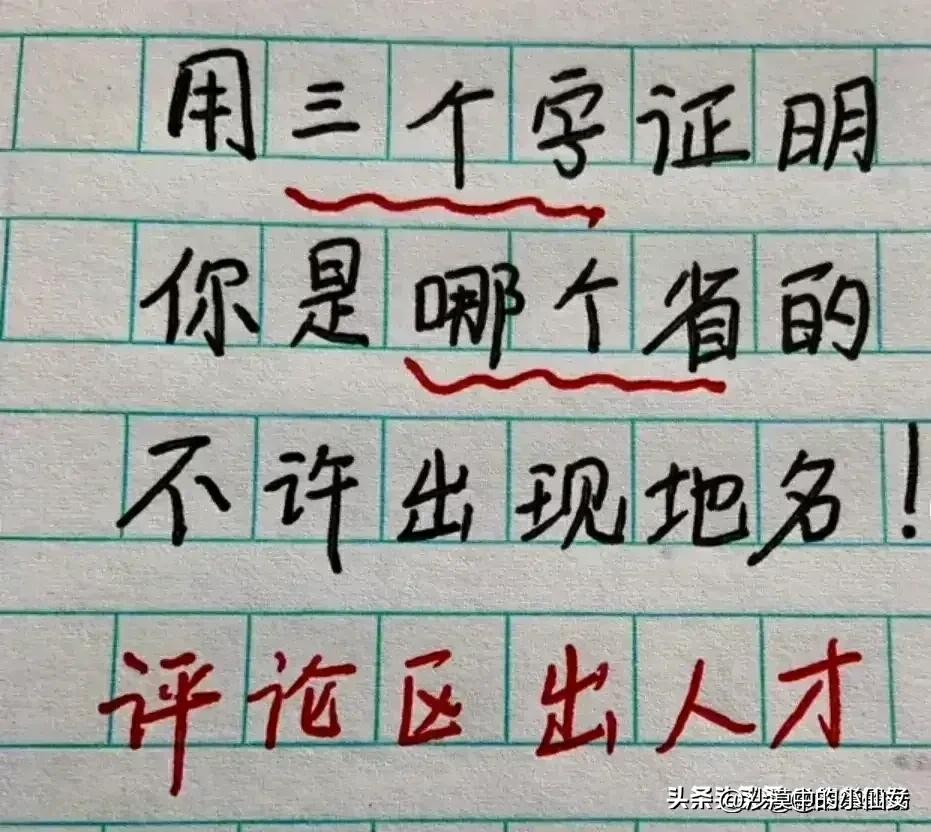 用三个字证明
你是哪个省的
不许出现地名!
评论区出人才
头条 @沙漠中的小仙女